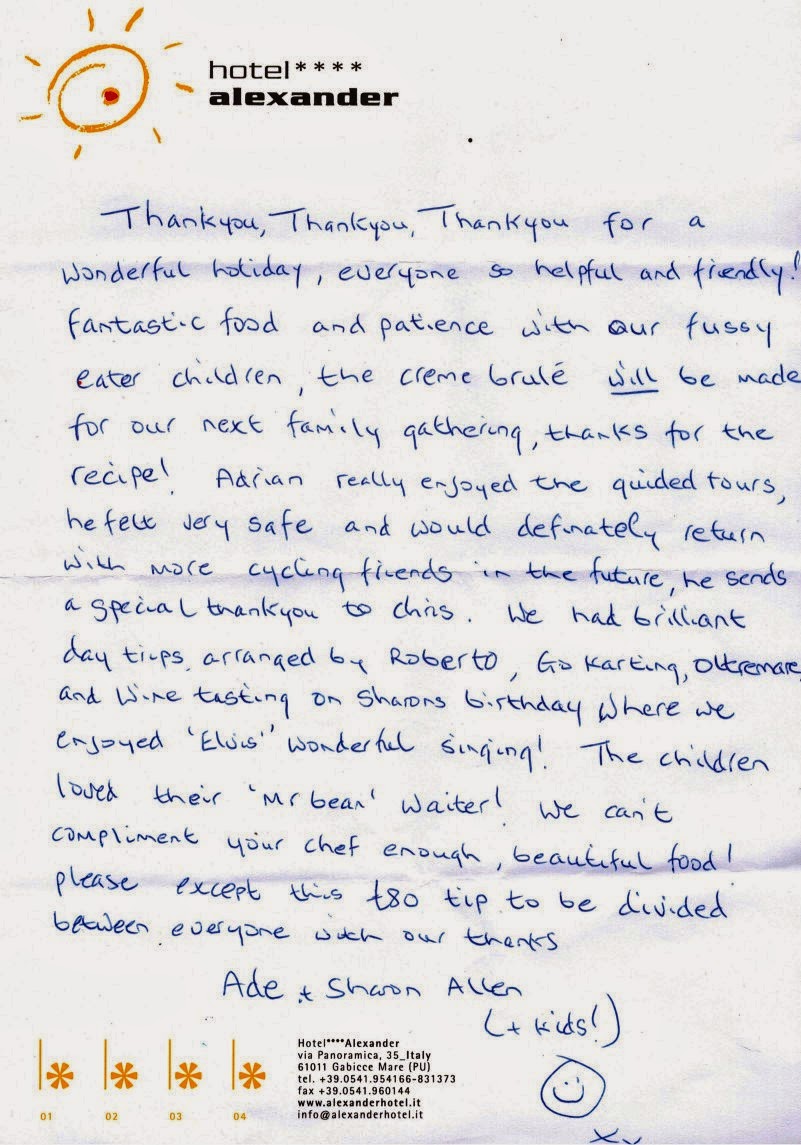 hotel****
alexander
Thankyou, Thankyou, Thankyou for a
wonderful holiday, everyone so helpful and friendly!
fantastic food and patience with our fussy
eater children, the creme brulé will be made
for our next family gathering, thanks for the
recipe! Adrian really enjoyed the guided tours,
he felt very safe and would definately return
with more cycling friends in the future, he sends
a special thankyou to Chris. We had brilliant
day trips, arranged by Roberto, Go Karting, Oltremare,
and Wine tasting on Sharons birthday where we
enjoyed 'Elvis'' wonderful singing! The children
loved their 'Mr bean' waiter! We can't
compliment your chef enough, beautiful food!
please except this £80 tip to be divided
between everyone with our thanks
Ade + Sharon Allen
(+ kids!)
xx
01 02 03 04
Hotel****Alexander
via Panoramica, 35_Italy
61011 Gabicce Mare (PU)
tel. +39.0541.954166-831373
fax +39.0541.960144
www.alexanderhotel.it
info@alexanderhotel.it